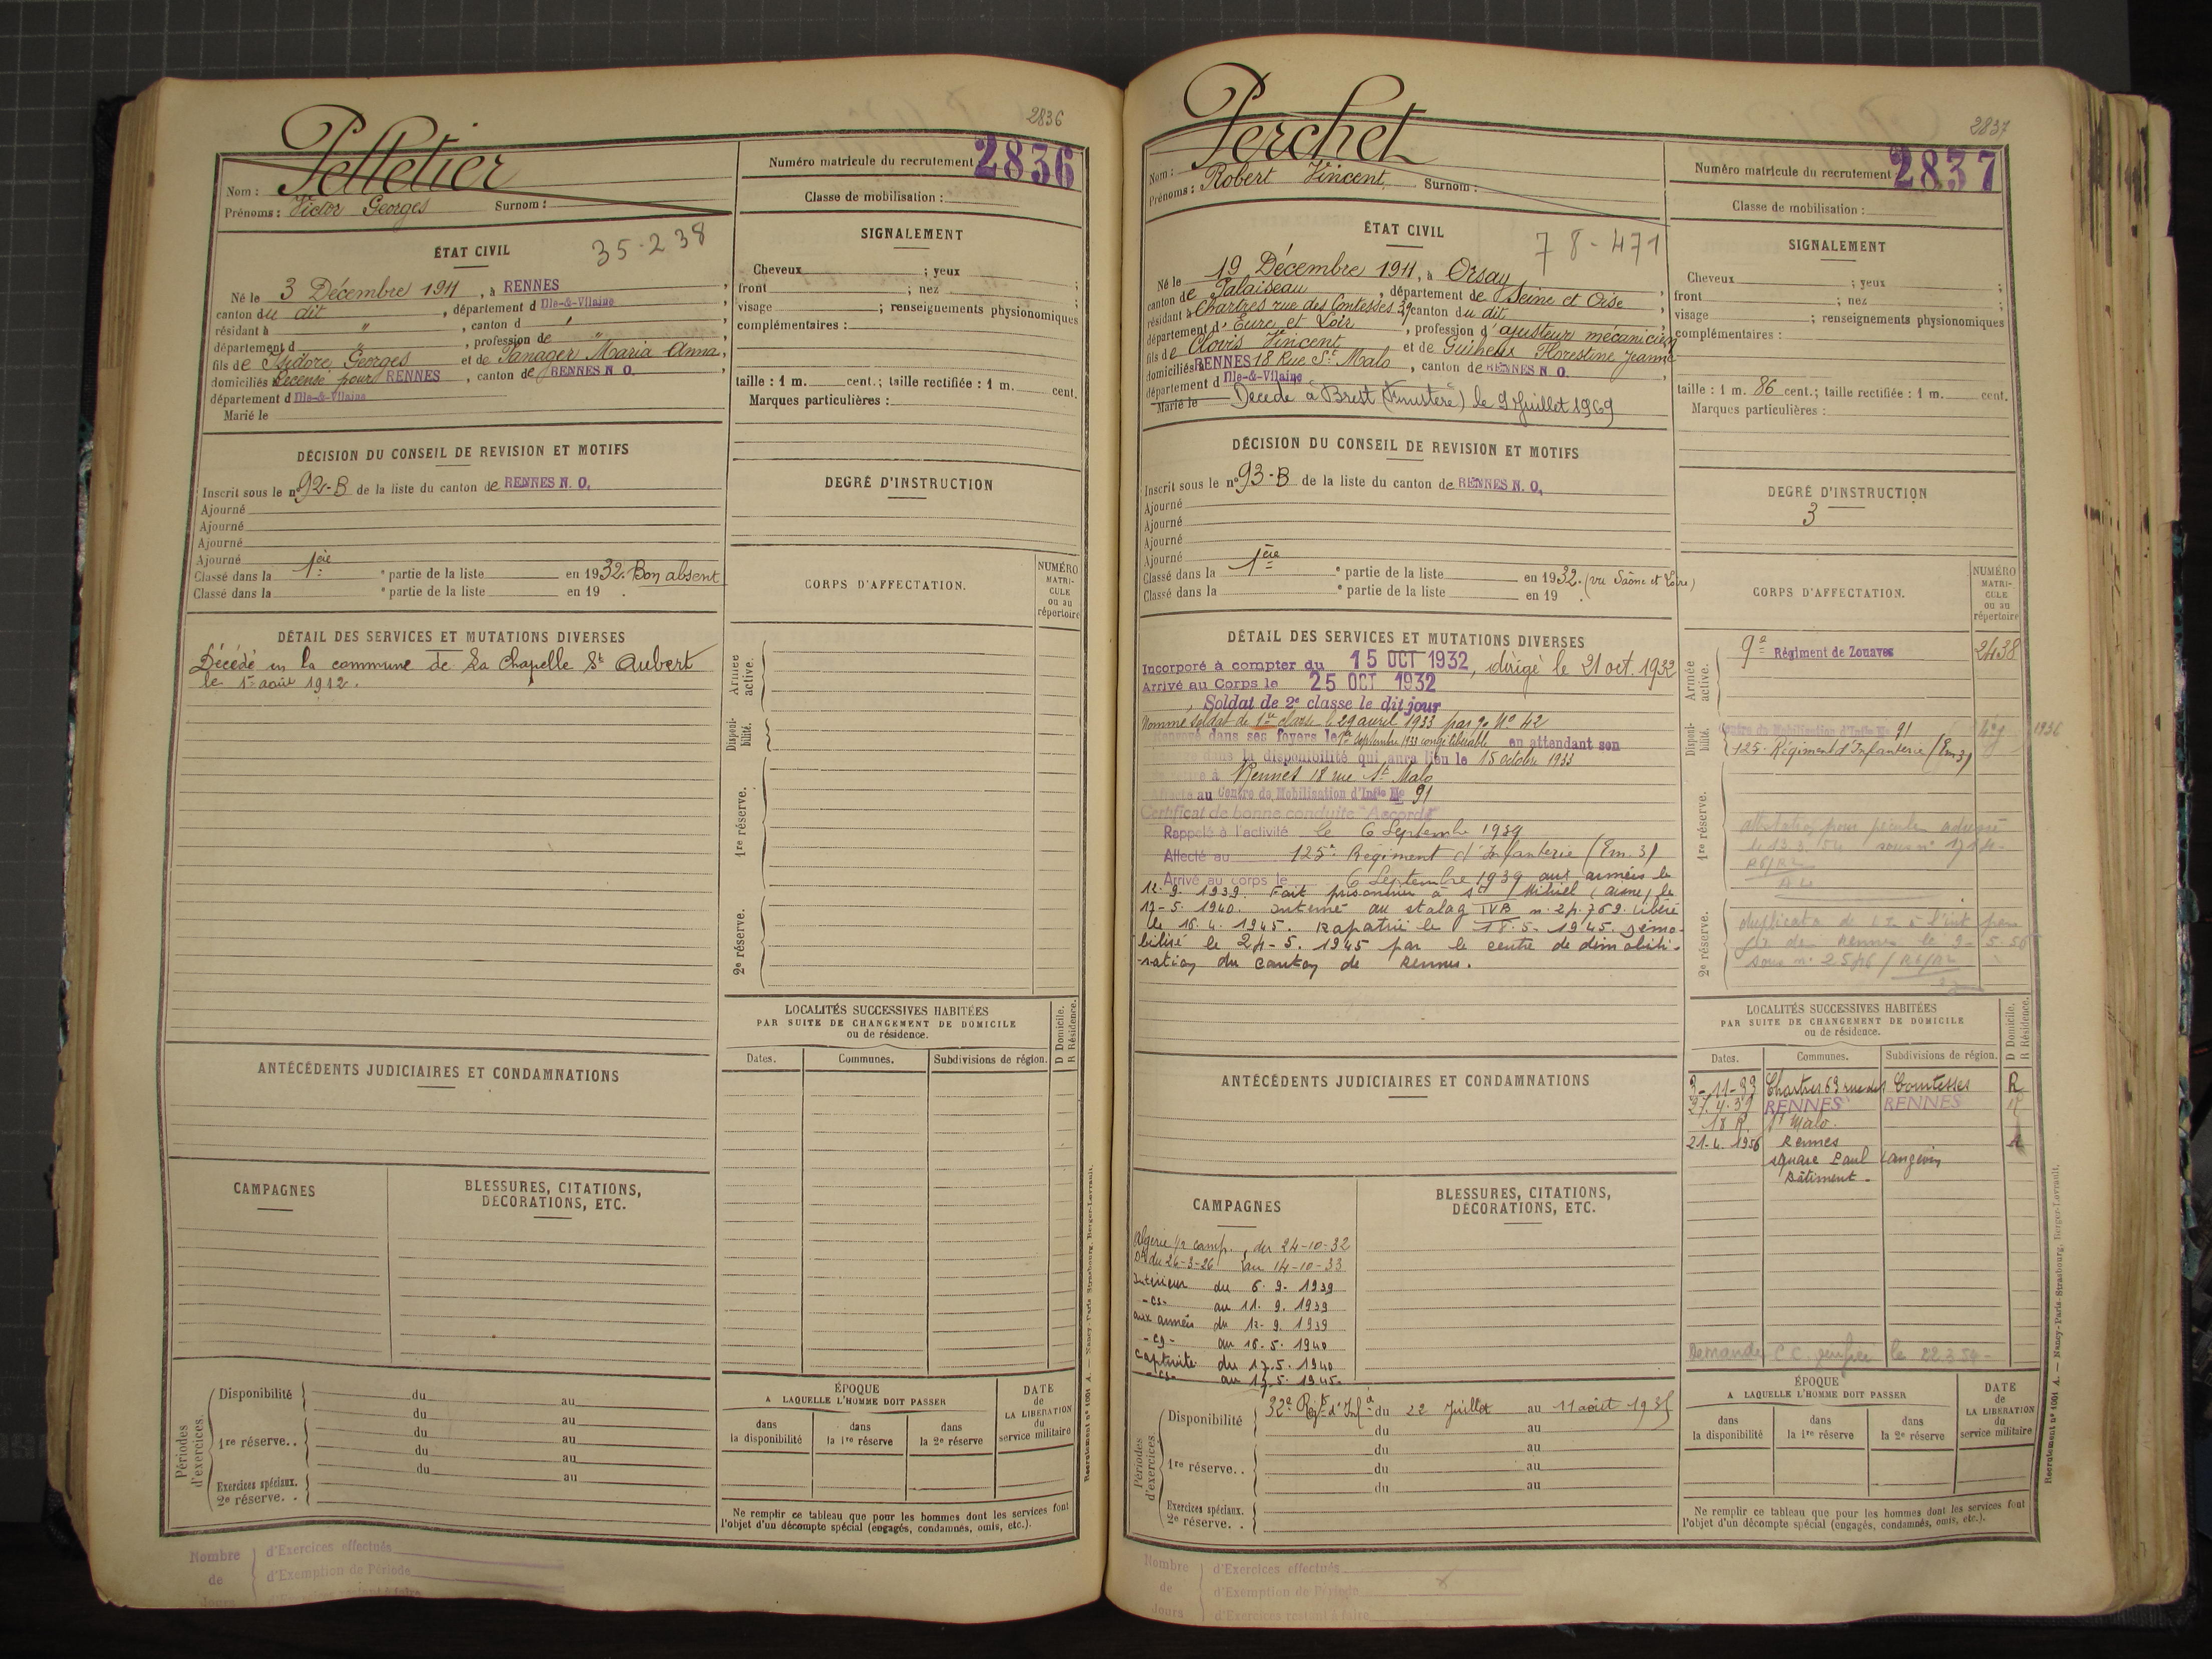 2836
Pelletier
Numéro matricule du recrutement 2836
Nom :
Prénoms : Victor Georges Surnom :
Classe de mobilisation :
ÉTAT CIVIL
35-238
Né le 3 Décembre 1911, à RENNES
canton du dit, département d Ille-&-Vilaine
résidant à ", canton d "
département d ", profession de "
fils de Isidore Georges et de Panager Maria Anna,
domiciliés Recensé pour RENNES, canton de RENNES N. O.
département d Ille-&-Vilaine
Marié le
SIGNALEMENT
Cheveux ; yeux ;
front ; nez ;
visage ; renseignements physionomiques
complémentaires :
taille : 1 m. cent.; taille rectifiée : 1 m. cent.
Marques particulières :
DÉCISION DU CONSEIL DE REVISION ET MOTIFS
Inscrit sous le n° 92-B de la liste du canton de RENNES N. O.
Ajourné
Ajourné
Ajourné
Ajourné
Classé dans la 1ère partie de la liste en 1932. Bon absent
Classé dans la partie de la liste en 19 .
DEGRÉ D'INSTRUCTION
CORPS D'AFFECTATION.
NUMÉRO MATRICULE ou au répertoire
DÉTAIL DES SERVICES ET MUTATIONS DIVERSES
Décédé en la commune de La Chapelle St Aubert
le 1er août 1912.
Armée active.
Disponibilité.
1re réserve.
2e réserve.
LOCALITÉS SUCCESSIVES HABITÉES
PAR SUITE DE CHANGEMENT DE DOMICILE
ou de résidence.
Dates. Communes. Subdivisions de région. D Domicile. R Résidence.
ANTÉCÉDENTS JUDICIAIRES ET CONDAMNATIONS
CAMPAGNES
BLESSURES, CITATIONS,
DÉCORATIONS, ETC.
Périodes d'exercices.
Disponibilité du au
du au
1re réserve.. du au
du au
Exercices spéciaux. du au
2e réserve. .
ÉPOQUE
A LAQUELLE L'HOMME DOIT PASSER
dans la disponibilité
dans la 1re réserve
dans la 2e réserve
DATE de LA LIBÉRATION du service militaire
Ne remplir ce tableau que pour les hommes dont les services font
l'objet d'un décompte spécial (engagés, condamnés, omis, etc.).
Recrutement n° 1001 A. — Nancy-Paris-Strasbourg, Berger-Levrault.
Nombre de Jours
d'Exercices effectués
d'Exemption de Période
d'Exercices restant à faire
2837
Perchet
Numéro matricule du recrutement 2837
Nom :
Prénoms : Robert Vincent Surnom :
Classe de mobilisation :
ÉTAT CIVIL
78-471
Né le 19 Décembre 1911, à Orsay
canton de Palaiseau, département de Seine et Oise
résidant à Chartres rue des Comtesses 39 canton du dit
département d'Eure et Loir, profession d'ajusteur mécanicien
fils de Clovis Vincent et de Florestine Jeanne
domiciliés RENNES 18 Rue St Malo, canton de RENNES N. O.
département d Ille-&-Vilaine
Marié le Décédé à Brest (Finistère) le 9 Juillet 1969
SIGNALEMENT
Cheveux ; yeux ;
front ; nez ;
visage ; renseignements physionomiques
complémentaires :
taille : 1 m. 86 cent.; taille rectifiée : 1 m. cent.
Marques particulières :
DÉCISION DU CONSEIL DE REVISION ET MOTIFS
Inscrit sous le n° 93-B de la liste du canton de RENNES N. O.
Ajourné
Ajourné
Ajourné
Ajourné
Classé dans la 1ère partie de la liste en 1932. (vu Saône et Loire)
Classé dans la partie de la liste en 19 .
DEGRÉ D'INSTRUCTION
3
CORPS D'AFFECTATION.
NUMÉRO MATRICULE ou au répertoire
DÉTAIL DES SERVICES ET MUTATIONS DIVERSES
Incorporé à compter du 15 OCT 1932, dirigé le 21 oct. 1932
Arrivé au Corps le 25 OCT 1932
Soldat de 2e classe le dit jour
Nommé soldat de 1re classe le 29 avril 1933 par No 42
Renvoyé dans ses foyers le 1er Septembre 1933 congé libérable en attendant son
dans la disponibilité qui aura lieu le 15 octobre 1933
à Rennes 18 rue St Malo
Affecté au Centre de Mobilisation d'Infie No 91
Certificat de bonne conduite "Accordé"
Rappelé à l'activité le 6 Septembre 1939
Affecté au 125e Régiment d'Infanterie (Em. 3)
Arrivé au corps le 6 Septembre 1939 aux armées le
12. 9. 1939. Fait prisonnier à St Mihiel (Aisne) le
17-5. 1940. Interné au stalag IVB n. 24.769. Libéré
le 16. 4. 1945. Rapatrié le 18. 5. 1945. Démo-
bilisé le 24-5. 1945 par le centre de démobili-
-sation du canton de Rennes.
Armée active.
9e Régiment de Zouaves 2438
Disponibilité.
Centre de Mobilisation d'Infie No 91 1936
125e Régiment d'Infanterie (Em 3)
1re réserve.
2e réserve.
LOCALITÉS SUCCESSIVES HABITÉES
PAR SUITE DE CHANGEMENT DE DOMICILE
ou de résidence.
Dates. Communes. Subdivisions de région. D Domicile. R Résidence.
3-11-33 Chartres 63 rue des Comtesses R
27.4.37 RENNES RENNES R
18 R. St Malo.
21-4. 1956 Rennes R
square Paul Langevin
Bâtiment.
Demande C C le 22.3.54-
ANTÉCÉDENTS JUDICIAIRES ET CONDAMNATIONS
CAMPAGNES
Algérie 1/2 camp. du 24-10-32
Dt du 26-3-26 au 14-10-33
Intérieur du 6. 9. 1939
-cs- au 11. 9. 1939
aux armées du 12. 9. 1939
-cg- au 16. 5. 1940
Captivité du 17. 5. 1940
-cs- au 17. 5. 1945.
BLESSURES, CITATIONS,
DÉCORATIONS, ETC.
Périodes d'exercices.
Disponibilité 32e Rgt d'Infie du 22 Juillet au 11 août 1935
du au
1re réserve.. du au
du au
Exercices spéciaux.
2e réserve. .
ÉPOQUE
A LAQUELLE L'HOMME DOIT PASSER
dans la disponibilité
dans la 1re réserve
dans la 2e réserve
DATE de LA LIBÉRATION du service militaire
Ne remplir ce tableau que pour les hommes dont les services font
l'objet d'un décompte spécial (engagés, condamnés, omis, etc.).
Recrutement n° 1001 A. — Nancy-Paris-Strasbourg, Berger-Levrault.
Nombre de Jours
d'Exercices effectués
d'Exemption de Période
d'Exercices restant à faire